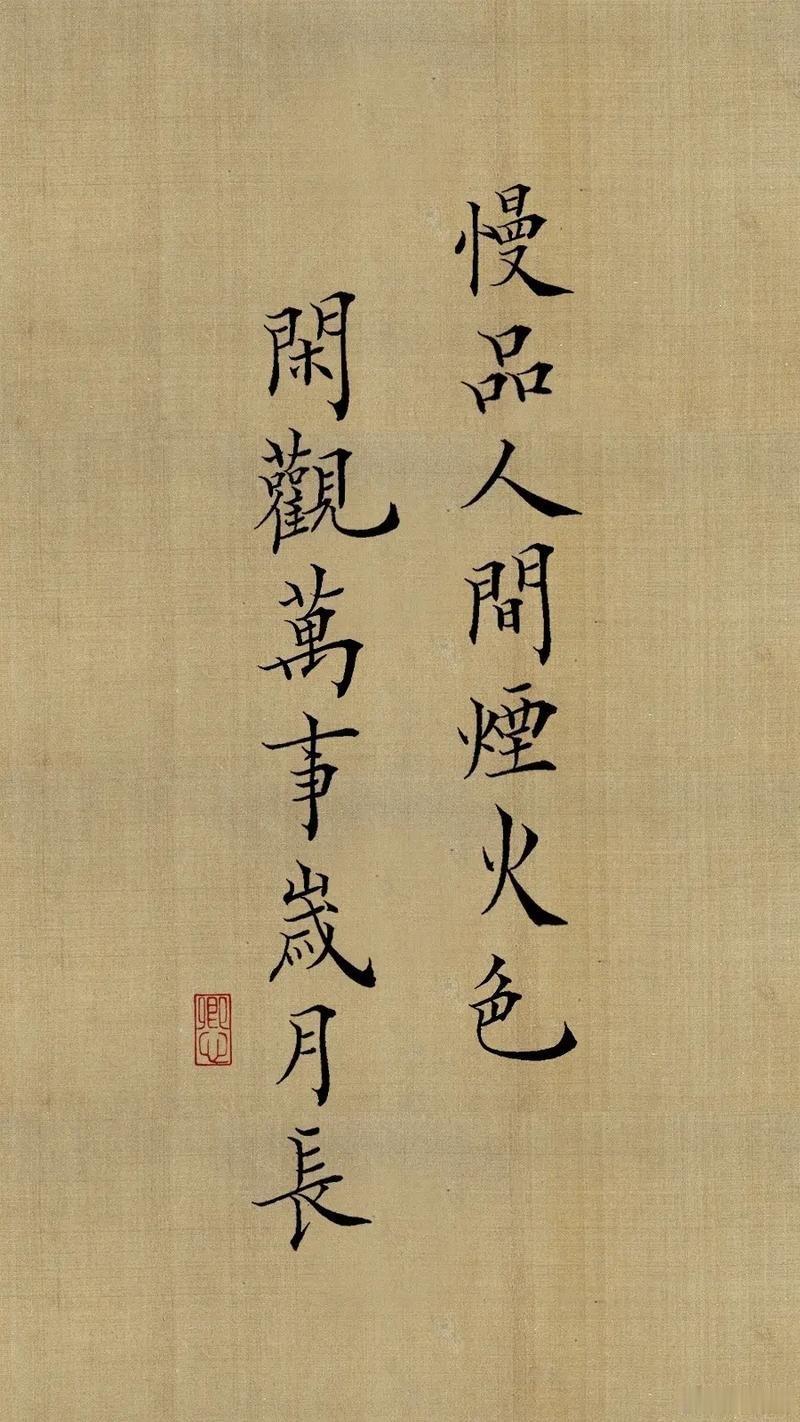 慢品人間煙火色
閑觀萬事歲月長
卿心